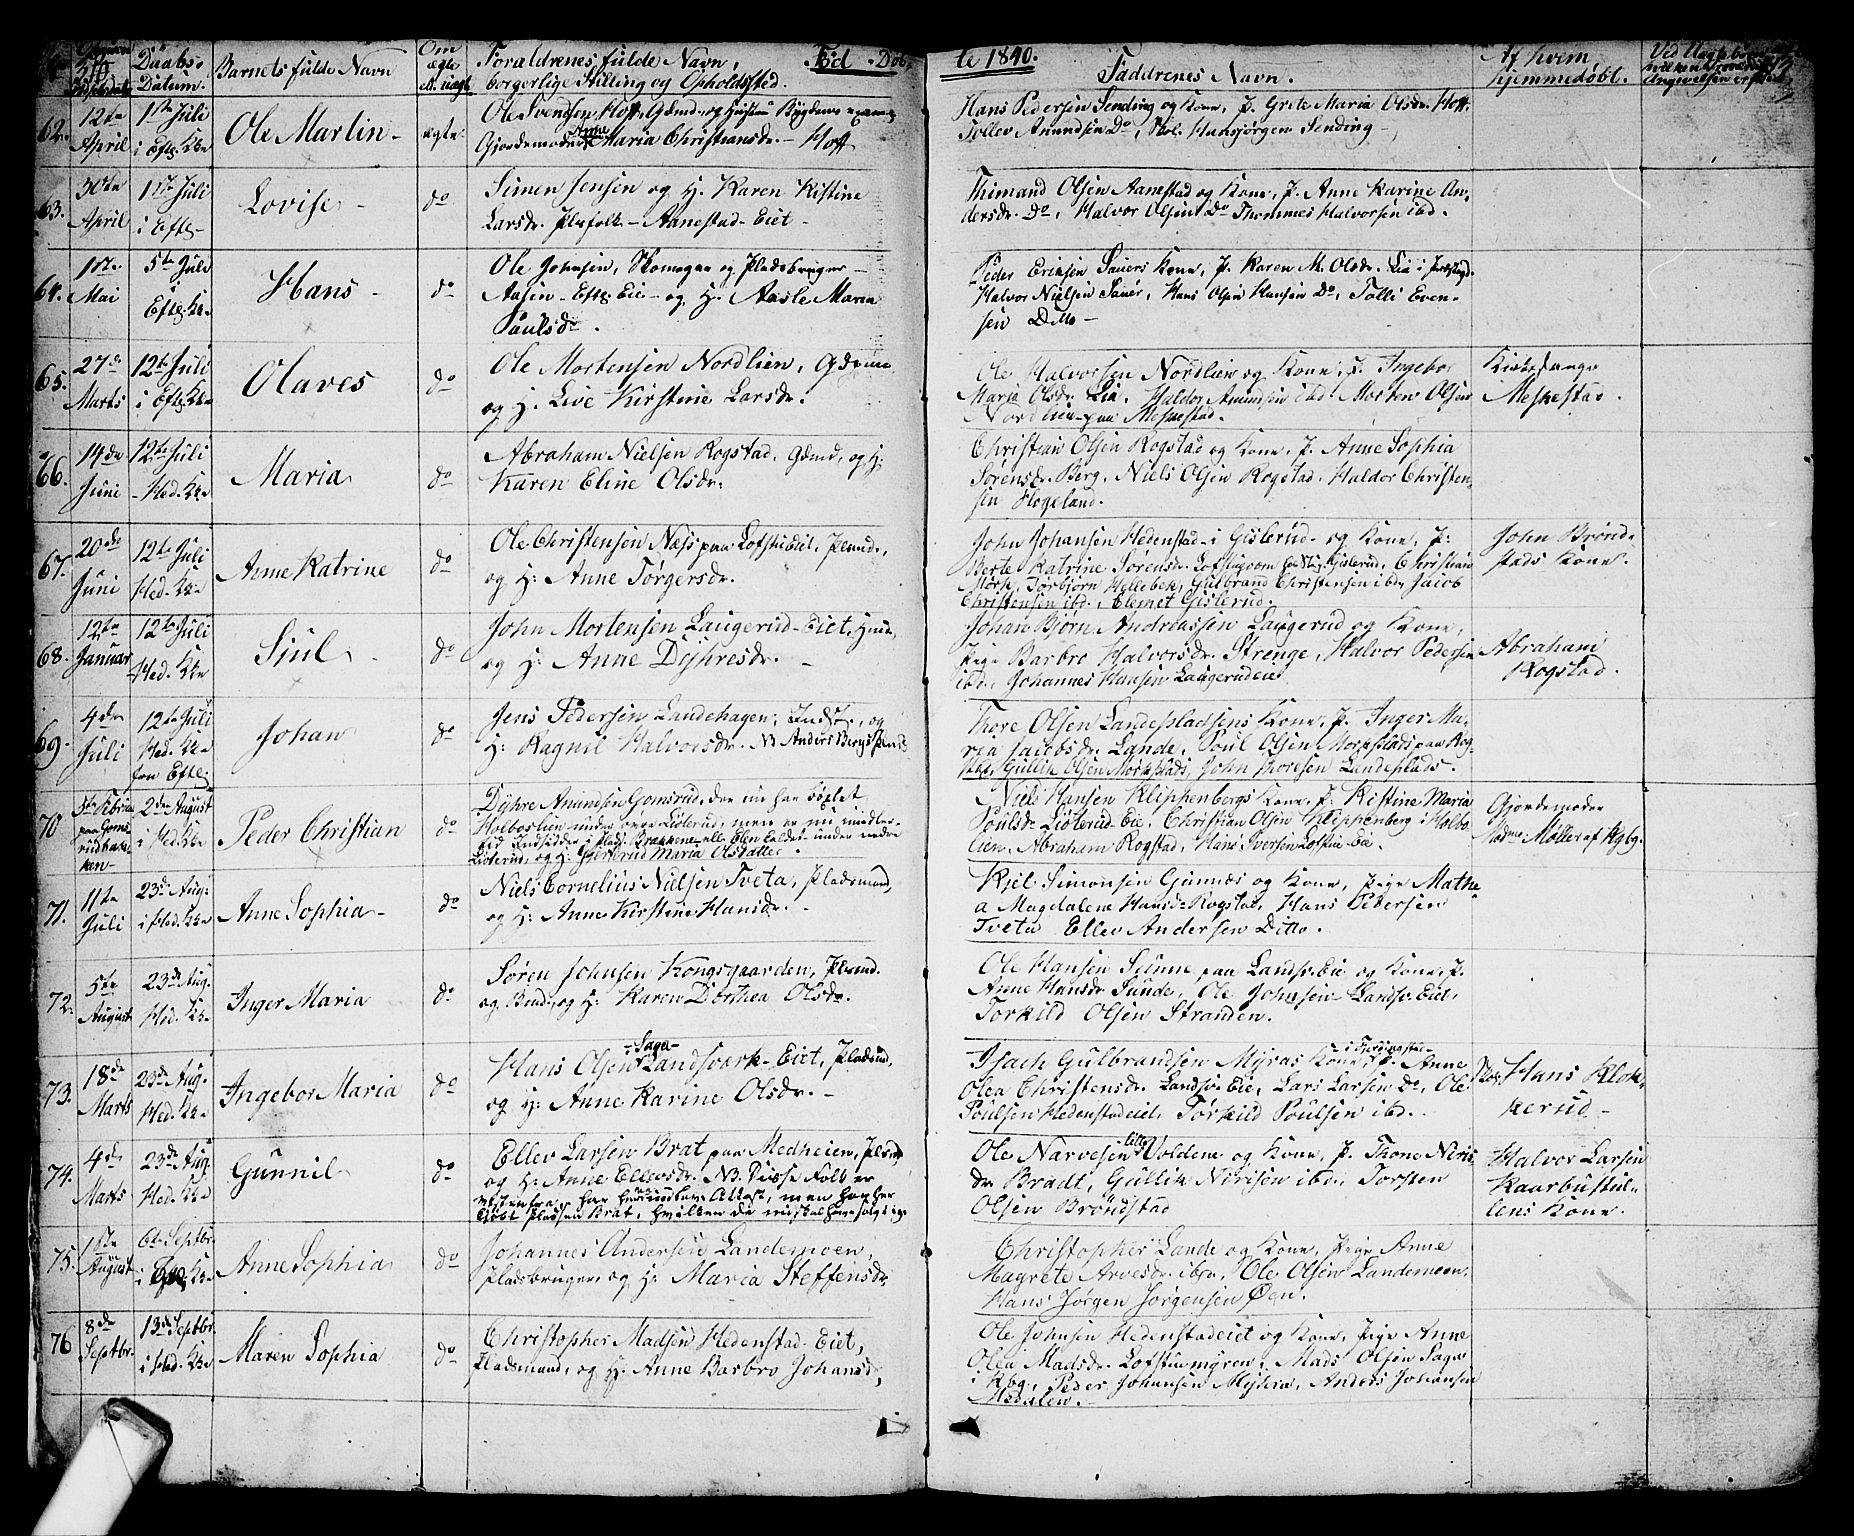 Daabs-
Datum.
Barnets fulde Navn
Om
ægte
el. uægt
Forældrenes fulde Navn,
borgerlige Stilling og Opholdssted.
Fød- Døb-
te 1840.
Faddrenes Navn.
Af hvem
hjemmedøbt.
62.
12te
April
1ste Juli
i Eftl. Kke
Ole Martin
ægte
Ole Svendsen Hoff, Gdmd, og Hustru
Gjordemoder Anne Maria Christiansdr. - Hoff
Hans Pedersen Sending og Kone, P. Grete Maria Olsdr. Hoff
Tollev Amundsen Do, Hansjørgen Sending
63.
30te
April
1ste Juli
i Eftl-
Lovise
do
Simen Jensen og H. Karen Kistine
Larsdr. Plsfolk - Aanestad-Eiet -
Thimand Olsen Aanestad og Kone, P. Anne Karine An-
dersdr. Do, Halvor Olsen Do Thommes Halvorsen ibd.
64.
1ste
Mai
5te Juli
i
Eftl. Kke
Hans -
do
Ole Johnsen, Skomager og Pladsbruger -
Aasen - Eftl. Eie - og H. Aasle Maria
Poulsdr.
Peder Eriksen Sauers Kone, P. Karen M. Olsdr. Lia i
Halvor Nielsen Sauer, Hans Olsen Hansen Do, Tolli Even-
sen Ditto -
65.
27de
Marts
12te Juli
i Eftl. Kke
Olaves
do
Ole Mortensen Nordlien,
og H. Live Kirstine Larsdr.
Ole Halvorsen Nordlien og Kone, P. Ingebor
Maria Olsdr. Lia, Haldor Amundsen ibd. Morten Olsen
Nordlien paa Meskestad.
Kirkesanger
Meskestad.
66.
14de
Juni
12te Juli
- Hed. Kke
Maria
do
Abraham Nielsen Rogstad, Gdmd, og H.
Karen Eline Olsdr.
Christian Olsen Rogstad og Kone, P. Anne Sophia
Sørensdr. Berg, Niels Olsen Rogstad, Haldor Christen-
sen Hogeland.
67.
20de
Juni
12te Juli
Hed. Kke
Anne Katrine
do
Ole Christensen Næss paa Lofstueiet, Plsmd.,
og H: Anne Torgersdr.
John Johansen Hedenstad - i Gislerud - og Kone, P:
Berte Katrine Sørensdr. Gislerud, Christian
Mørk, Torbjørn Hellebek, Gulbrand Christensen ibd. Jacob
Christensen ibd., Clemet Gislerud.
John Brønd-
stads Kone.
68.
12te
Januar
12te Juli
Hed. Kke
Siul
do
John Mortensen Laugerud-Eiet, Hmd,
og H: Anne Dyhresdr. -
Johan Bjørn Andreassen Laugerud og Kone,
Pige Barbro Halvorsdr. Strenge, Halvor Pedersen
ibd., Johannes Hansen Laugerudeie
Abraham
Rogstad.
69.
4de
Juli
12te Juli
Hed. Kke
fra Eftl.
Johan
do
Jens Pedersen Landehagen, Indst., og
H: Ragnil Halvorsdr. NB Anders Bergs
Thore Olsen Landepladsens Kone, P. Inger Ma-
ria Jacobsdr. Lande. Poul Olsen Morkplads paa Rog-
stad, Gullik Olsen Morkplads, John Thoresen Landeplads.
70
5te Februar
paa Goms-
rudbak-
ken-
2den August
i Hed. Kke
Peder Christian
do
Dyhre Amundsen Gomsrud, der nu har kjøbt
Holboelien under øvre Listerud, men er nu imidler-
tid Indsidder i Pladsen Bræggene under nedre
Listerud, og H: Gjertrud Maria Olsdatter.
Niels Hansen Klippenbergs Kone, P. Kistine Maria
Poulsdr. Listerud-Eie, Christian Olsen Klippenberg i Holbo-
elien, Abraham Rogstad, Hans Iversen Lofstu-Eie.
Gjordemoder
Madme Møller af Kgbg.
71.
11te
Juli
23de Aug:
i Hed. Kke
Anne Sophia -
do
Niels Cornelius Nielsen Tveta, Pladsmand,
og H: Anne Kirstine Hansdr. -
Kjel Simonsen Gunnæs og Kone, Pige Mathe-
a Magdalene Hansdr. Rogstad, Hans Pedersen
Tveta Ellev Andersen Ditto.
72.
5te
August
23de Aug.
Hed. Kke
Inger Maria
do
Søren Johnsen Kongsgaarden, Plsmd.
og, og H: Karen Dorthea Olsdr.
Ole Hansen Sunne paa Landsv. Eie og Kone, P.
Anne Hansdr. Sunde, Ole Johnsen Landsv. Eiet,
Torkild Olsen Stranden.
73.
18de
Marts
23de Aug.
Hed. Kke
Ingebor Maria
do
Hans Olsen -Saga- Landsverk-Eiet, Pladsmd,
og H: Anne Karine Olsdr. -
Isach Gulbrandsen Myras Kone, P. Anne
Olea Christensdr. Landsv. Eie, Lars Larsen Do, Ole
Poulsen Hedenstadeiet, Torkild Poulsen ibd.
Hans Klok-
kerud -
74.
4de
Marts
23de Aug.
Hed. Kke
Gunnil
do
Ellev Larsen Brat paa Medheien, Plsmd,
og H: Anne Ellevsdr. NB. Disse Folk er
men har her
kjøbt Pladsen Brat, hvilken de
Ole Narvesen lille Voldene og Kone, P. Thone Niris-
dr. Bradt, Gullik Nirisen ibd., Torsten
Olsen Brøndstad
Halvor Larsen
Kaarbustul-
lens Kone.
75.
1ste
August
6te Septbr.
i Kke
Anne Sophia
do
Johannes Andersen Landemoen,
Pladsbruger, og H: Maria Steffensdr.
Christopher Lande og Kone, Pige Anne
Magrete Arvesdr. ibd., Ole Olsen Landemoen,
Hans Jørgen Jørgensen Øen.
76
8de
Septbr.
13de Septbr.
i Hed. Kke
Maren Sophia
do
Christopher Madsen Hedenstad-Eiet,
Pladsmand, og H: Anne Barbro Johansdr,
Ole Johnsen Hedenstadeiet og Kone, Pige Anne
Olea Madsdr. Lofstumyren, Mads Olsen Saga
i Kbg, Peder Johansen Myhra, Anders Johansen
Medalen. -